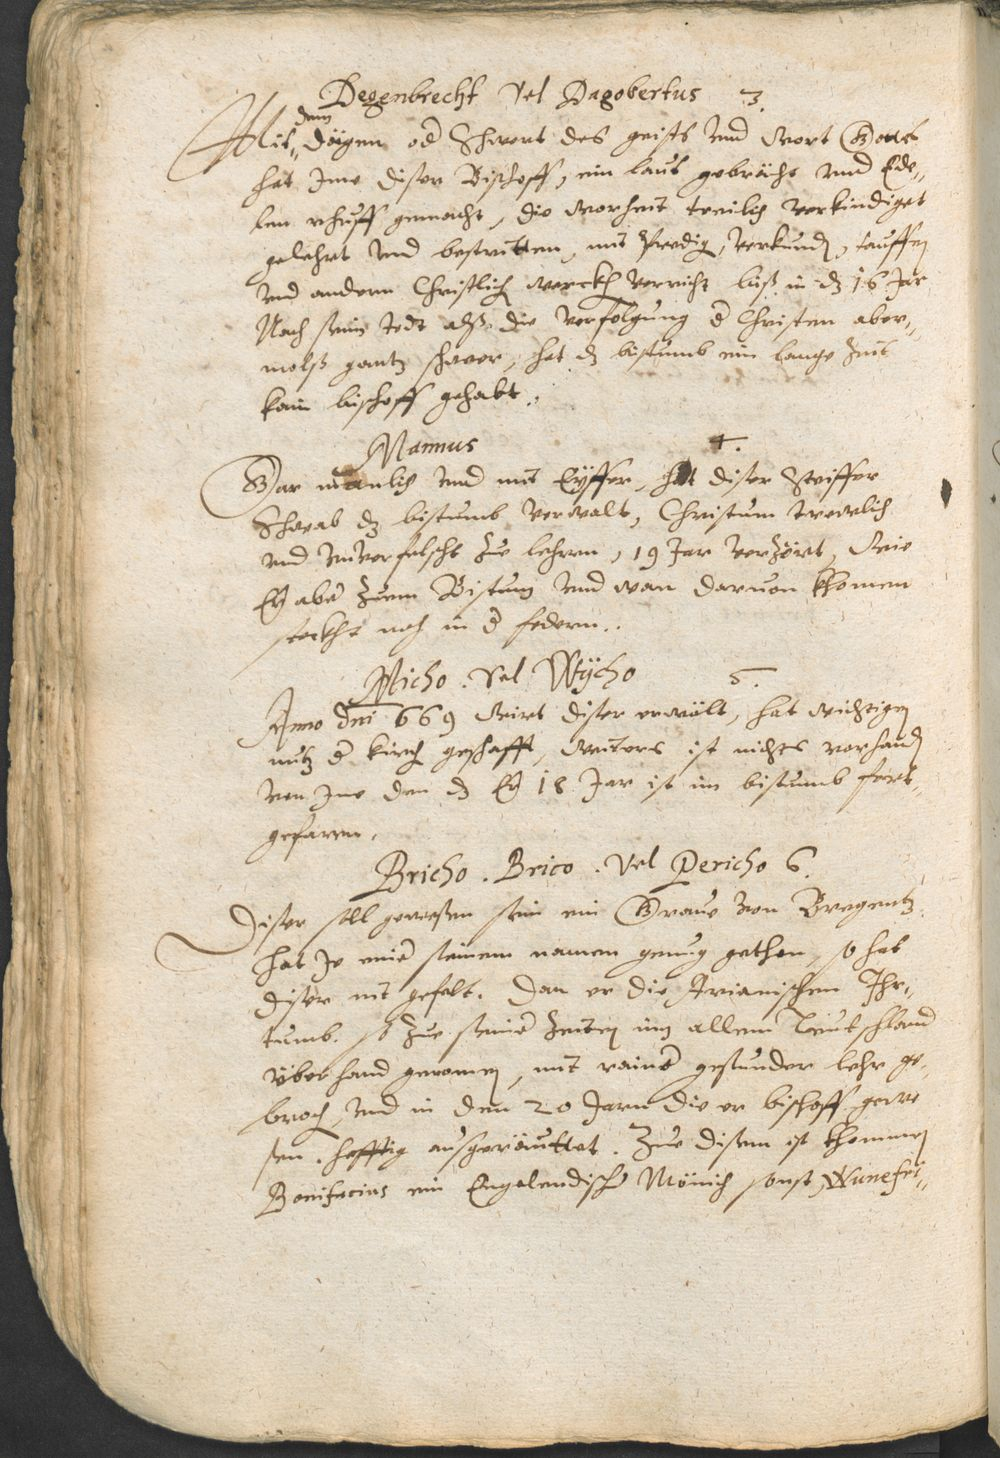 Degenbrecht vel Dagobertus 3.
Mit dem Dägen od Schwert des geists und wort Gottes
hat Ime diser Bischoff, ein laut gebrächt und Ede„
len rhuff gemacht, die worheit treilich verkindiget
gelehrt und bestritten, mit Predig, verkund, tauffen
und andern Christlich werckh verricht biß in dz 16 Jar
Nach seim todt alß die verfolgung d Christen aber„
molß gantz schwer, hat dz bistumb ein lange Zeit
kain bischoff gehabt.
Mannus 4.
Gar manlich und mit Eyffer, hat diser Steiffer
Schwab dz bistumb verwalt, Christum trewlich
und unverfelscht Zue lehren, 19 Jar verzört, Wie
Er aber Zuem Bistum und wan darvon khomen
steckht noch in d federn..
Wicho. Vel Wÿcho 5.
Anno Dni 669 Wirt diser erwält, hat wichtigen
nutz d kirch geschafft, weiters ist nichts vorhand
von Ime den dz Er 18 Jar ist im bistumb fort„
gefaren.
Bricho. Brico. Vel Pericho 6.
Diser soll gewesen sein ein Grave von Bregentz
hat Je einer seinem namen genug gethon, so hat
diser nit gefelt. Dan er die Arianischen Ihr„
tumb. so Zue seiner Zeiten im allem Teutschland
überhand genomen, mit rainer gesunder lehr ge„
broch, und in den 20 Jarn die er bischoff gewe
sen. hefftig ausgereuttet. Zue disem ist khommen
Bonifacius ein Engelendisch Mönich sonst, Wunefri„